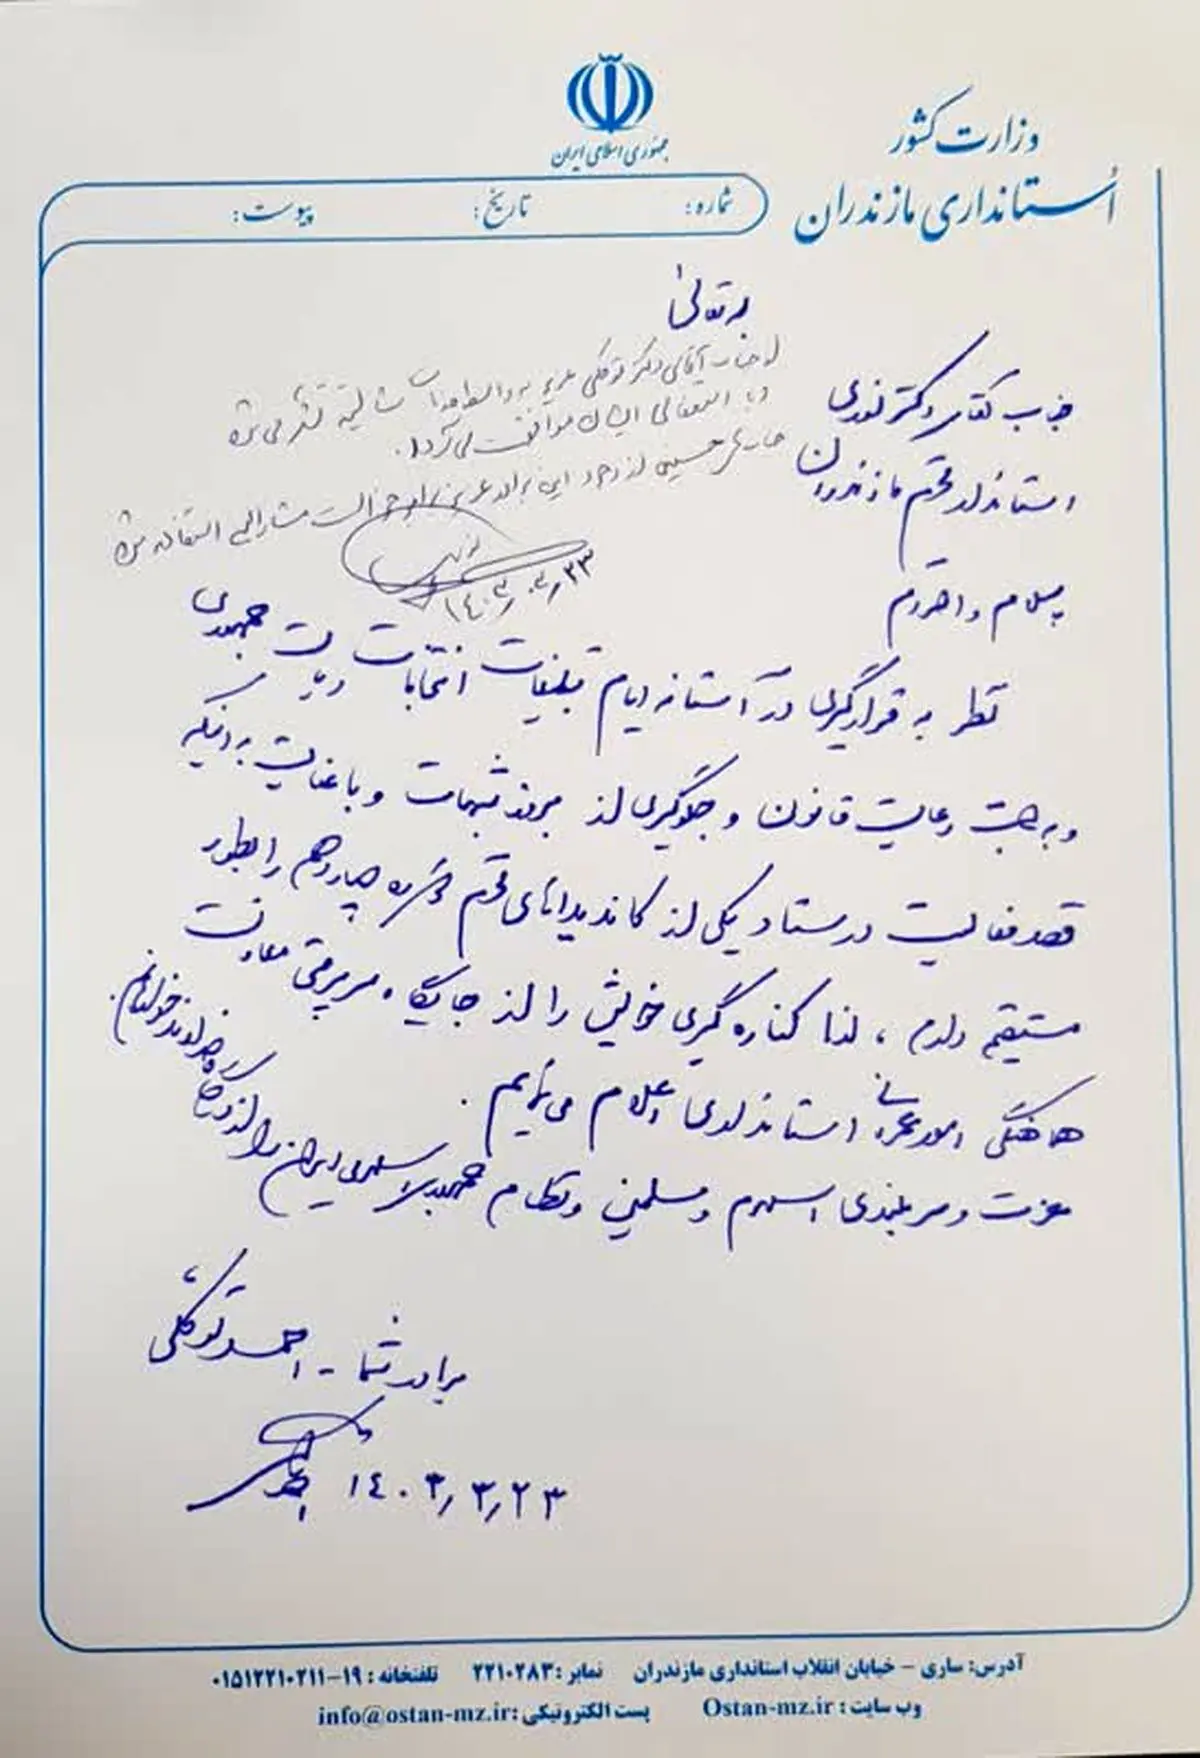 جمهوری اسلامی ایران
وزارت کشور
اُستانداری مازندران
شماره: تاریخ: پیوست:
بسمه تعالی
جناب آقای دکتر نوری
استاندار محترم مازندران
از جناب آقای دکتر توکلی عزیز به واسطه خدمات شایسته تشکر می‌شود
و با استعفای ایشان موافقت می‌گردد.
حسینی از وجود این برادر عزیز مشارالیه استفاده شود
۱۴۰۳/۰۳/۲۳
سلام و احترام
نظر به قرارگیری در آستانه ایام تبلیغات انتخابات ریاست جمهوری
و به جهت رعایت قانون و جلوگیری از بروز شبهات و با عنایت به اینکه
قصد فعالیت در ستاد یکی از کاندیداهای محترم دوره چهاردهم را بطور
مستقیم دارم ، لذا کناره گیری خویش را از جایگاه سرپرستی معاونت
هماهنگی امور عمرانی استانداری اعلام می نمایم .
عزت و سربلندی اسلام و مسلمین و نظام جمهوری اسلامی ایران را از درگاه خداوند خواهانم.
برادر شما - احمد توکلی
۱۴۰۳/۳/۲۳
آدرس: ساری - خیابان انقلاب استانداری مازندران نمابر: ۲۲۱۰۲۸۳ تلفنخانه: ۱۹-۰۱۵۱۲۲۱۰۲۱۱
وب سایت: Ostan-mz.ir پست الکترونیکی: info@ostan-mz.ir